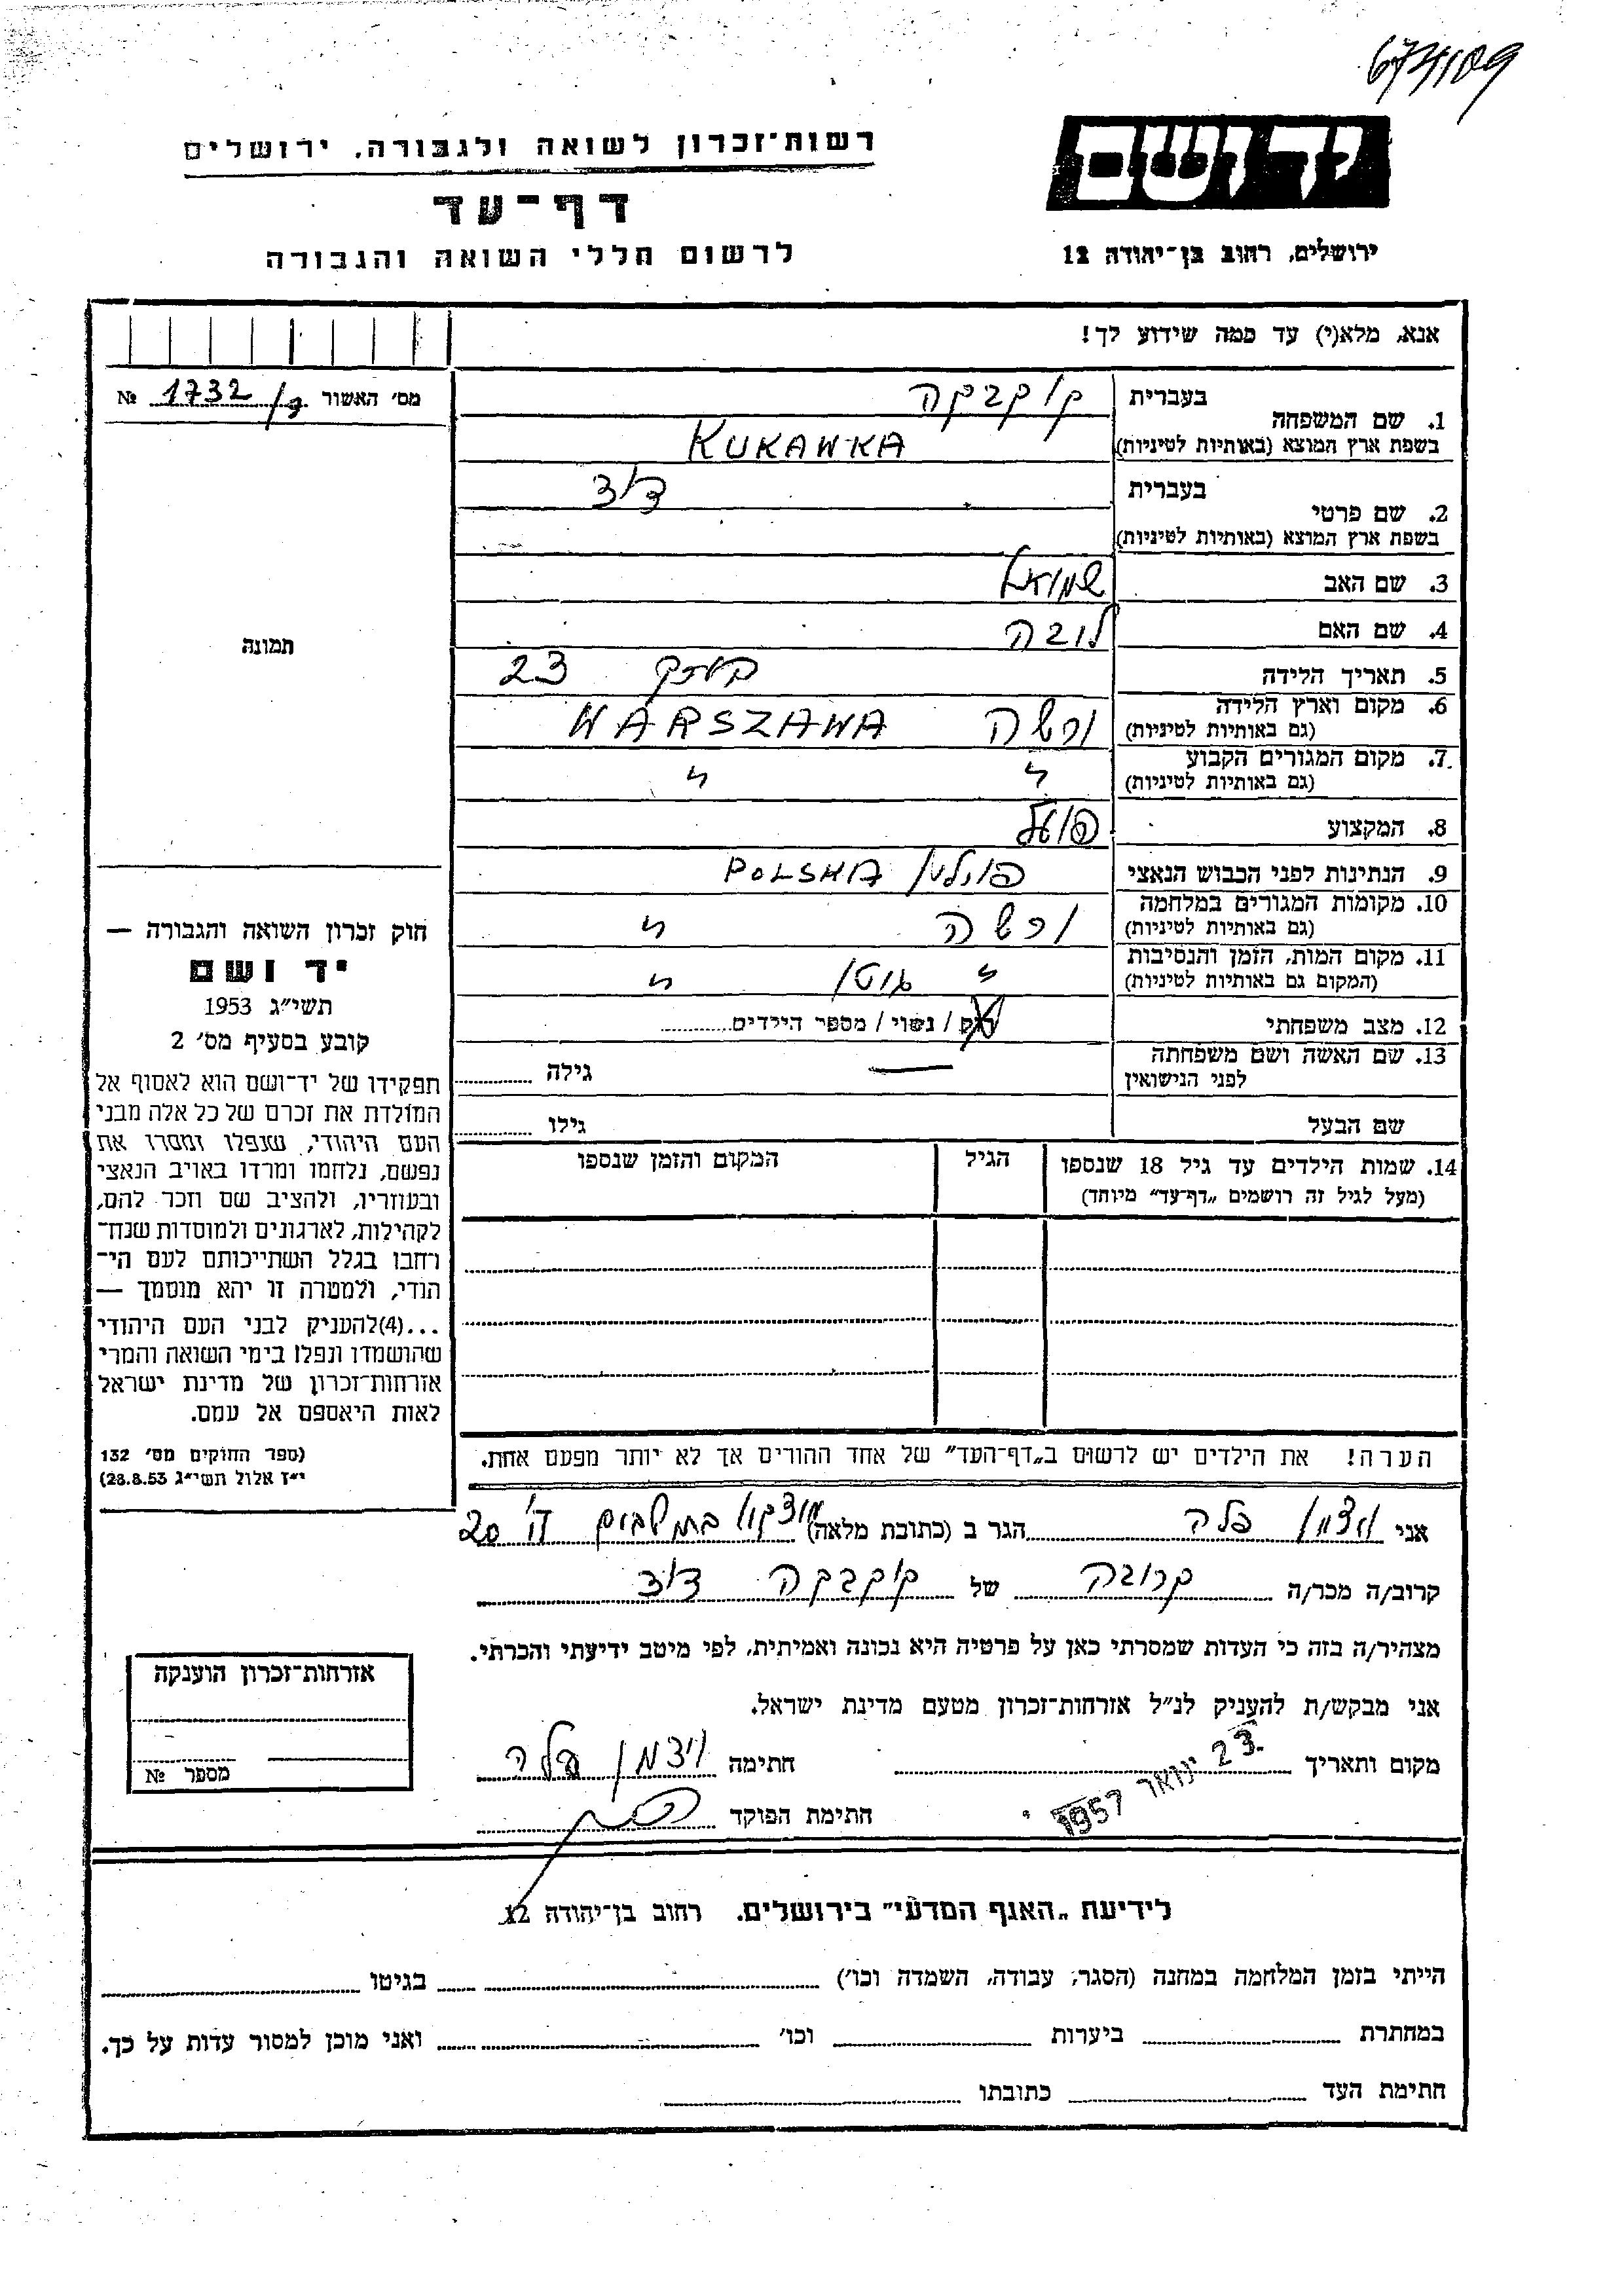 674109
יד ושם
רשות־זכרון לשואה ולגבורה, ירושלים
דף־עד
לרשום חללי השואה והגבורה
ירושלים, רחוב בן־יהודה 12
אנא, מלא(י) עד כמה שידוע לך!
מס' האשור 1732 №
1. שם המשפחה בעברית קוקבקה
בשפת ארץ המוצא (באותיות לטיניות) KUKAWKA
2. שם פרטי בעברית דוד
בשפת ארץ המוצא (באותיות לטיניות)
3. שם האב שמואל
4. שם האם לובה
5. תאריך הלידה 23
6. מקום וארץ הלידה (גם באותיות לטיניות) ורשה WARSZAWA
7. מקום המגורים הקבוע (גם באותיות לטיניות) " "
8. המקצוע פועל
9. הנתינות לפני הכבוש הנאצי פולין POLSKA
10. מקומות המגורים במלחמה (גם באותיות לטיניות) ורשה "
11. מקום המות, הזמן והנסיבות (המקום גם באותיות לטיניות) " גטו "
12. מצב משפחתי רוק / נשוי / מספר הילדים
13. שם האשה ושם משפחתה לפני הנישואין — גילה
שם הבעל גילו
14. שמות הילדים עד גיל 18 שנספו הגיל המקום והזמן שנספו
(מעל לגיל זה רושמים „דף־עד” מיוחד)
הערה! את הילדים יש לרשום ב„דף־העד” של אחד ההורים אך לא יותר מפעם אחת.
תמונה
חוק זכרון השואה והגבורה —
יד ושם
תשי״ג 1953
קובע בסעיף מס' 2
תפקידו של יד־ושם הוא לאסוף אל
המולדת את זכרם של כל אלה מבני
העם היהודי, שנפלו ומסרו את
נפשם, נלחמו ומרדו באויב הנאצי
ובעוזריו, ולהציב שם וזכר להם,
לקהילות, לארגונים ולמוסדות שנח־
רבו בגלל השתייכותם לעם הי־
הודי, ולמטרה זו יהא מוסמך —
...(4)להעניק לבני העם היהודי
שהושמדו ונפלו בימי השואה והמרי
אזרחות־זכרון של מדינת ישראל
לאות היאספם אל עמם.
(ספר החוקים מס' 132
י״ז אלול תשי״ג 28.8.53)
אני ויצמן פלה הגר ב (כתובת מלאה) 20
קרוב/ה מכר/ה קרובה של קוקבקה דוד
מצהיר/ה בזה כי העדות שמסרתי כאן על פרטיה היא נכונה ואמיתית, לפי מיטב ידיעתי והכרתי.
אני מבקש/ת להעניק לנ״ל אזרחות־זכרון מטעם מדינת ישראל.
מקום ותאריך 23 ינואר 1957 חתימה ויצמן פלה
חתימת הפוקד
אזרחות־זכרון הוענקה
מספר №
לידיעת „האגף המדעי” בירושלים, רחוב בן־יהודה 12
הייתי בזמן המלחמה במחנה (הסגר, עבודה, השמדה וכו') בגיטו
במחתרת ביערות וכו' ואני מוכן למסור עדות על כך.
חתימת העד כתובתו